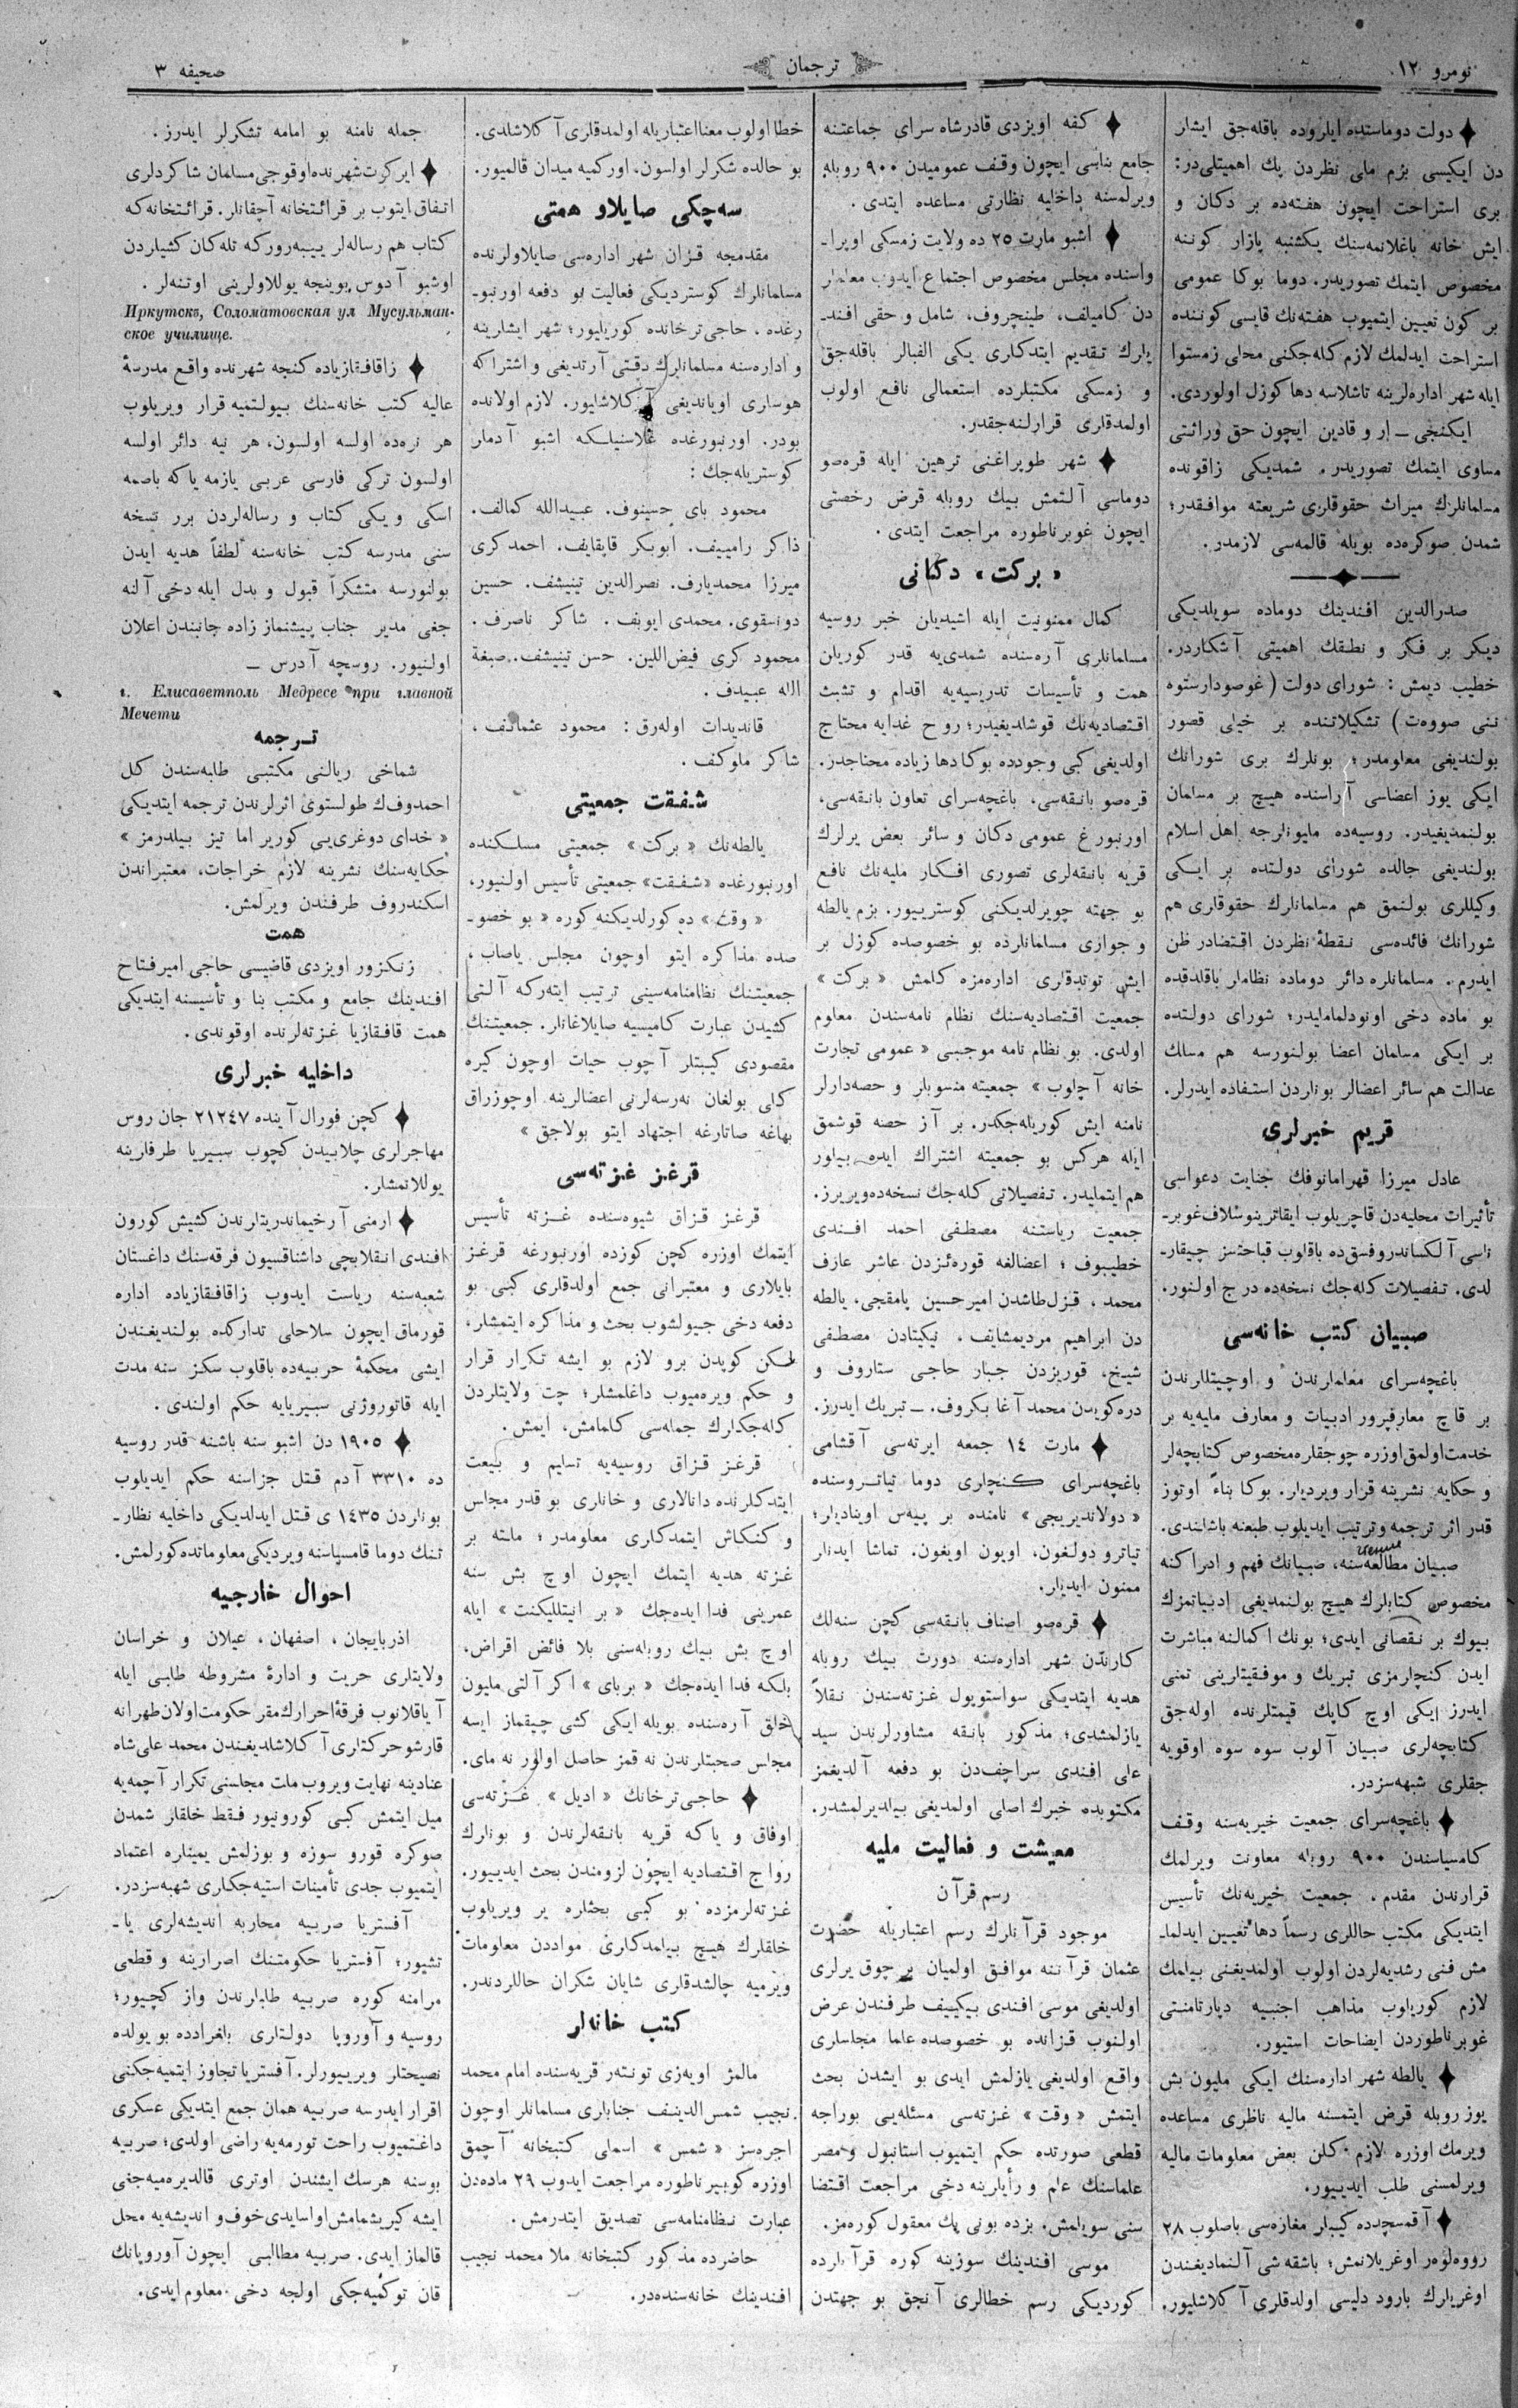 نومرو ١٢
ترجمان
صحیفه ٣
دولت دوماسنده ایلروده باقله‌جق ایشلر
دن ایکیسی بزم ملی نظردن پك اهمیتلی‌در:
بری استراحت ایچون هفته‌ده بر دکان و
ایش خانه باغلانمه‌سنك یکشنبه پازار کوننه
مخصوص ایتمك تصوریدر. دوما بوکا عمومی
بر کون تعیین ایتمیوب هفته‌نك قایسی کوننده
استراحت ایدلمك لازم کله‌جکنی محلی زمستوا
ایله شهر اداره‌لرینه تاشلاسه دها کوزل اولوردی.
ایکنجی ــ ار و قادین ایچون حق وراثتی
مساوی ایتمك تصوریدر. شمدیکی زاقونده
مسلمانلرك میراث حقوقلری شریعته موافقدر؛
شمدن صوکره‌ده بویله قالمه‌سی لازمدر.
صدرالدین افندینك دوماده سویلدیکی
دیکر بر فکر و نطقك اهمیتی آشکاردر.
خطیب دیمش : شورای دولت ( غوصودارستوه
ننی صووه‌ت ) تشکیلاتنده بر خیلی قصور
بولندیغی معلومدر؛ بونلرك بری شورانك
ایکی یوز اعضاسی آراسنده هیچ بر مسلمان
بولنمدیغیدر. روسیه‌ده ملیونلرجه اهل اسلام
بولندیغی حالده شورای دولتده بر ایکی
وکیللری بولنمق هم مسلمانلرك حقوقلری هم
شورانك فائده‌سی نقطۀ نظردن اقتضادر ظن
ایدرم. مسلمانلره دائر دوماده نظاملر باقلدقده
بو ماده دخی اونودلمامالیدر؛ شورای دولتده
بر ایکی مسلمان اعضا بولنورسه هم مسلك
عدالت هم سائر اعضالر بونلردن استفاده ایدرلر.
قریم خبرلری
عادل میرزا قهرمانوفك جنایت دعواسی
تأثیرات محلیه‌دن قاچریلوب ایقاترینوسلاف غوبر-
ناسی آلکساندروفسق‌ده باقلوب قباحتسز چیقار-
لدی. تفصیلات کله‌جك نسخه‌ده درج اولنور.
صبیان کتب خانه‌سی
باغچه‌سرای معلملرندن و اوچیتللرندن
بر قاچ معارفپرور ادبیات و معارف ملیه‌یه بر
خدمت اولمق اوزره چوجقلره مخصوص کتابچه‌لر
و حکایه نشرینه قرار ویردیلر. بوکا بناءً اوتوز
قدر اثر ترجمه و ترتیب ایدیلوب طبعنه باشلندی.
صبیان مطالعه‌سنه، صبیانك فهم و ادراکنه
مخصوص کتابلرك هیچ بولنمدیغی ادبیاتمزك
بیوك بر نقصانی ایدی؛ بونك اکمالنه مباشرت
ایدن کنچلرمزی تبریك و موفقیتلرینی تمنی
ایدرز ایکی اوچ کاپك قیمتلرنده اوله‌جق
کتابچه‌لری صبیان آلوب سوه سوه اوقویه
جقلری شبهه‌سزدر.
باغچه‌سرای جمعیت خیریه‌سنه وقف
کامسیاسندن ٩٠٠ روبله معاونت ویرلمك
قرارندن مقدم، جمعیت خیریه‌نك تأسیس
ایتدیکی مکتب حاللری رسماً دها تعیین ایدلما-
مش فنی رشدیه‌لردن اولوب اولمدیغنی بیلمك
لازم کوریلوب مذاهب اجنبیه دپارتامنتی
غوبرناطوردن ایضاحات استیور.
یالطه شهر اداره‌سنك ایکی ملیون بش
یوز روبله قرض ایتمسنه مالیه ناظری مساعده
ویرمك اوزره لازم کلن بعض معلومات مالیه
ویرلمسنی طلب ایدییور.
آقمسجدده کیبلر مغازه‌سی باصلوب ٢٨
رووه‌لوه‌ر اوغریلانمش؛ باشقه شی آلنمادیغندن
اوغریلرك بارود دلیسی اولدقلری آکلاشلیور.
کفه اویزدی قادرشاه سرای جماعتنه
جامع بناسی ایچون وقف عمومیدن ٩٠٠ روبله
ویرلمسنه داخلیه نظارتی مساعده ایتدی.
اشبو مارت ٢٥ ده ولایت زمسکی اوپرا-
واسنده مجلس مخصوص اجتماع ایدوب معلملر
دن کامیلف، طینچروف، شامل و حقی افند-
یلرك تقدیم ایتدکاری یکی الفبالر باقله‌جق
و زمسکی مکتبلرده استعمالی نافع اولوب
اولمدقلری قرارلنه‌جقدر.
شهر طوپراغنی ترهین ایله قره‌صو
دوماسی آلتمش بیك روبله قرض رخصتی
ایچون غوبرناطوره مراجعت ایتدی.
« برکت » دکانی
کمال ممنونیت ایله اشیدیلن خبر روسیه
مسلمانلری آره‌سنده شمدی‌یه قدر کوریلن
همت و تأسیسات تدریسیه‌یه اقدام و تشبث
اقتصادیه‌نك قوشلدیغیدر؛ روح غدایه محتاج
اولدیغی کبی وجودده بوکا دها زیاده محتاجدر.
قره‌صو بانقه‌سی، باغچه‌سرای تعاون بانقه‌سی،
اورنبورغ عمومی دکان و سائر بعض یرلرك
قریه بانقه‌لری تصوری افکار ملیه‌نك نافع
بو جهته چویرلدیکنی کوسترییور. بزم یالطه
و جواری مسلمانلرده بو خصوصده کوزل بر
ایش توتدقلری اداره‌مزه کلمش « برکت »
جمعیت اقتصادیه‌سنك نظام نامه‌سندن معلوم
اولدی. بو نظام نامه موجبی « عمومی تجارت
خانه آچلوب » جمعیته منسوبلر و حصه‌دارلر
نامنه ایش کوریله‌جکدر. بر آز حصه قوشمق
ایله هرکس بو جمعیته اشتراك ایده بیلور
هم ایتملیدر. تفصیلاتی کله‌جك نسخه‌ده ویریرز.
جمعیت ریاستنه مصطفی احمد افندی
خطیبوف ؛ اعضالغه قوره‌ئزدن عاشر عازف
محمد، قزل‌طاشدن امیرحسین یامقجی، یالطه
دن ابراهیم مردیمشایف، نیکیتادن مصطفی
شیخ، قوریزدن جبار حاجی ستاروف و
دره‌کویدن محمد آغا بکروف. ــ تبریك ایدرز.
مارت ١٤ جمعه ایرته‌سی آقشامی
باغچه‌سرای کنچلری دوما تیاتروسنده
« دولاندیریجی » نامنده بر پیه‌س اوینادیلر؛
تیاترو دولغون، اویون اویغون. تماشا ایدنلر
ممنون ایدیلر.
قره‌صو اصناف بانقه‌سی کچن سنه‌لك
کارندن شهر اداره‌سنه دورت بیك روبله
هدیه ایتدیکی سواستوپول غزته‌سندن نقلاً
یازلمشدی؛ مذکور بانقه مشاورلرندن سید
علی افندی سراچف‌دن بو دفعه آلدیغمز
مکتوبده خبرك اصلی اولمدیغی بیلدیرلمشدر.
معیشت و فعالیت ملیه
رسم قرآن
موجود قرآنلرك رسم اعتباریله حضرت
عثمان قرآننه موافق اولمیان بر چوق یرلری
اولدیغی موسی افندی بیکییف طرفندن عرض
اولنوب قزانده بو خصوصده علما مجلسلری
واقع اولدیغی یازلمش ایدی بو ایشدن بحث
ایتمش « وقت » غزته‌سی مسئله‌یی بوراجه
قطعی صورتده حکم ایتمیوب استانبول و مصر
علماسنك علم و رأیلرینه دخی مراجعت اقتضا
سنی سویلمش. بزده بونی پك معقول کوره‌مز.
موسی افندینك سوزینه کوره قرآنلرده
کوردیکی رسم خطالری آنجق بو جهتدن
خطا اولوب معنا اعتباریله اولمدقلری آکلاشلدی.
بو حالده شکرلر اولسون، اورکمیه میدان قالمیور.
سه‌چکی صایلاو همتی
مقدمجه قزان شهر اداره‌سی صایلاولرنده
مسلمانلرك کوستردیکی فعالیت بو دفعه اورنبو-
رغده، حاجی‌ترخانده کوریلیور؛ شهر ایشلرینه
و اداره‌سنه مسلمانلرك دقتی آرتدیغی و اشتراکه
هوسلری اویاندیغی آکلاشلیور. لازم اولانده
بودر. اورنبورغده غلاسنیلکه اشبو آدملر
کوستریله‌جك :
محمود بای حسینوف. عبیدالله کمالف.
ذاکر رامییف. ابوبکر قاپقایف. احمدکری
میرزا محمدیارف. نصرالدین تینیشف. حسین
دونسقوی. محمدی ایوبف. شاکر ناصرف.
محمود کری فیض‌اللین. حسن تینیشف. صبغة
الله عبیدف.
قاندیدات اوله‌رق : محمود عثمانف،
شاکر ملوکف.
شفقت جمعیتی
یالطه‌نك « برکت » جمعیتی مسلکنده
اورنبورغده «شفقت» جمعیتی تأسیس اولنیور،
« وقت » ده کورلدیکنه کوره « بو خصو-
صده مذاکره ایتو اوچون مجلس یاصاب،
جمعیتنك نظامنامه‌سینی ترتیب ایته‌رکه آلتی
کشیدن عبارت کامیسیه صایلاغانلر. جمعیتنك
مقصودی کیبتلر آچوب حیات اوچون کیره
کلی بولغان نه‌رسه‌لرنی اعضالرینه اوچوزراق
بهاغه صاتارغه اجتهاد ایتو بولاجق »
قرغز غزته‌سی
قرغز قزاق شیوه‌سنده غزته تأسیس
ایتمك اوزره کچن کوزده اورنبورغه قرغز
بایلاری و معتبرانی جمع اولدقلری کبی بو
دفعه دخی جیولشوب بحث و مذاکره ایتمشلر،
لکن کوپدن برو لازم بو ایشه تکرار قرار
و حکم ویره‌میوب داغلمشلر؛ چت ولایتلردن
کله‌جکلرك جمله‌سی کلمامش، ایمش.
قرغز قزاق روسیه‌یه تسلیم و بیعت
ایتدکلرنده دانالاری و خانلری بو قدر مجلس
و کنکاش ایتمدکاری معلومدر؛ ملته بر
غزته هدیه ایتمك ایچون اوچ بش سنه
عمرینی فدا ایده‌جك « بر انتیللیکنت » ایله
اوچ بش بیك روبله‌سنی بلا فائض اقراض،
بلکه فدا ایده‌جك « بربای » اکر آلتی ملیون
خلق آره‌سنده بویله ایکی کشی چیقماز ایسه
مجلس صحبتلرندن نه قمز حاصل اولور نه مای.
حاجی‌ترخانك « ادیل » غزته‌سی
اوفاق و یاکه قریه بانقه‌لرندن و بونلرك
رواج اقتصادیه ایچون لزومندن بحث ایدییور.
غزته‌لرمزده بو کبی بحثلره یر ویریلوب
خلقلرك هیچ بیلمدکلری مواددن معلومات
ویرمیه چالشدقلری شایان شکران حاللردندر.
کتب خانه‌لر
مالمژ اویه‌زی تونته‌ر قریه‌سنده امام محمد
نجیب شمس‌الدینف جنابلری مسلمانلر اوچون
اجره‌سز « شمس » اسملی کتبخانه آچمق
اوزره کوبیرناطوره مراجعت ایدوب ٢٩ ماده‌دن
عبارت نظامنامه‌سی تصدیق ایتدرمش.
حاضرده مذکور کتبخانه ملا محمد نجیب
افندینك خانه‌سنده‌در.
جمله نامنه بو امامه تشکرلر ایدرز.
ایرکوت شهرنده اوقوجی مسلمان شاکردلری
اتفاق ایتوب بر قرائتخانه آچقانلر. قرائتخانه‌که
کتاب هم رساله‌لر ییبه‌رورکه تله‌کان کشیلردن
اوشبو آدرس بوینچه یوللاولرینی اوتنه‌لر.
Иркутскъ, Соломатовская ул Мусульман-
ское училище.
زاقافقازیاده کنجه شهرنده واقع مدرسۀ
عالیه کتب خانه‌سنك بیولتمیه قرار ویریلوب
هر نره‌ده اولسه اولسون، هر نیه دائر اولسه
اولسون ترکی فارسی عربی یازمه یاکه باصمه
اسکی و یکی کتاب و رساله‌لردن برر نسخه
سنی مدرسه کتب خانه‌سنه لطفاً هدیه ایدن
بولنورسه متشکراً قبول و بدل ایله دخی آلنه
جغی مدیر جناب پیشنماز زاده جانبندن اعلان
اولنیور. روسچه آدرس ــ
г. Елисаветполь Медресе при главной
Мечети
ترجمه
شماخی ریالنی مکتبی طلبه‌سندن کل
احمدوف‌ك طولستوی اثرلرندن ترجمه ایتدیکی
« خدای دوغری‌یی کوریر اما تیز بیلدرمز »
حکایه‌سنك نشرینه لازم خراجات، معتبراندن
اسکندروف طرفندن ویرلمش.
همت
زنکزور اویزدی قاضیسی حاجی امیرفتاح
افندینك جامع و مکتب بنا و تأسیسنه ایتدیکی
همت قافقازیا غزته‌لرنده اوقوندی.
داخلیه خبرلری
کچن فورال آینده ٢١٢٤٧ جان روس
مهاجرلری چلابیدن کچوب سبیریا طرفلرینه
یوللانمشلر.
ارمنی آرخیماندریتلرندن کشیش کورون
افندی انقلابچی داشناقسیون فرقه‌سنك داغستان
شعبه‌سنه ریاست ایدوب زاقافقازیاده اداره
قورماق ایچون سلاحلی تدارکده بولندیغندن
ایشی محکمۀ حربیه‌ده باقلوب سکز سنه مدت
ایله قاتوروژنی سبیریایه حکم اولندی.
١٩٠٥ دن اشبو سنه باشنه قدر روسیه
ده ٣٣١٠ آدم قتل جزاسنه حکم ایدیلوب
بونلردن ١٤٣٥ ی قتل ایدلدیکی داخلیه نظار-
تنك دوما قامسیاسنه ویردیکی معلوماتده کورلمش.
احوال خارجیه
اذربایجان، اصفهان، عیلان و خراسان
ولایتلری حریت و ادارۀ مشروطه طلبی ایله
آیاقلانوب فرقۀ احرارك مقر حکومت اولان طهرانه
قارشو حرکتلری آکلاشلدیغندن محمد علی شاه
عنادینه نهایت ویروب ملت مجلسنی تکرار آچمه‌یه
میل ایتمش کبی کورونیور فقط خلقلر شمدن
صوکره قورو سوزه و بوزلمش یمینلره اعتماد
ایتمیوب جدی تأمینات استیه‌جکلری شبهه‌سزدر.
آفستریا صربیه محاربه اندیشه‌لری یا-
تشیور؛ آفستریا حکومتنك اصرارینه و قطعی
مرامنه کوره صربیه طلبلرندن واز کچیور؛
روسیه و آوروپا دولتلری بلغرادده بو یولده
نصیحتلر ویرییورلر. آفستریا تجاوز ایتمیه‌جکنی
اقرار ایدرسه صربیه همان جمع ایتدیکی عسکری
داغتمیوب راحت تورمه‌یه راضی اولدی؛ صربیه
بوسنه هرسك ایشندن اوتری قالدیره‌میه‌جغی
ایشه کیریشمامش اولسایدی خوف و اندیشه‌یه محل
قالماز ایدی. صربیه مطالبی ایچون آوروپانك
قان توکمیه‌جکی اولجه دخی معلوم ایدی.